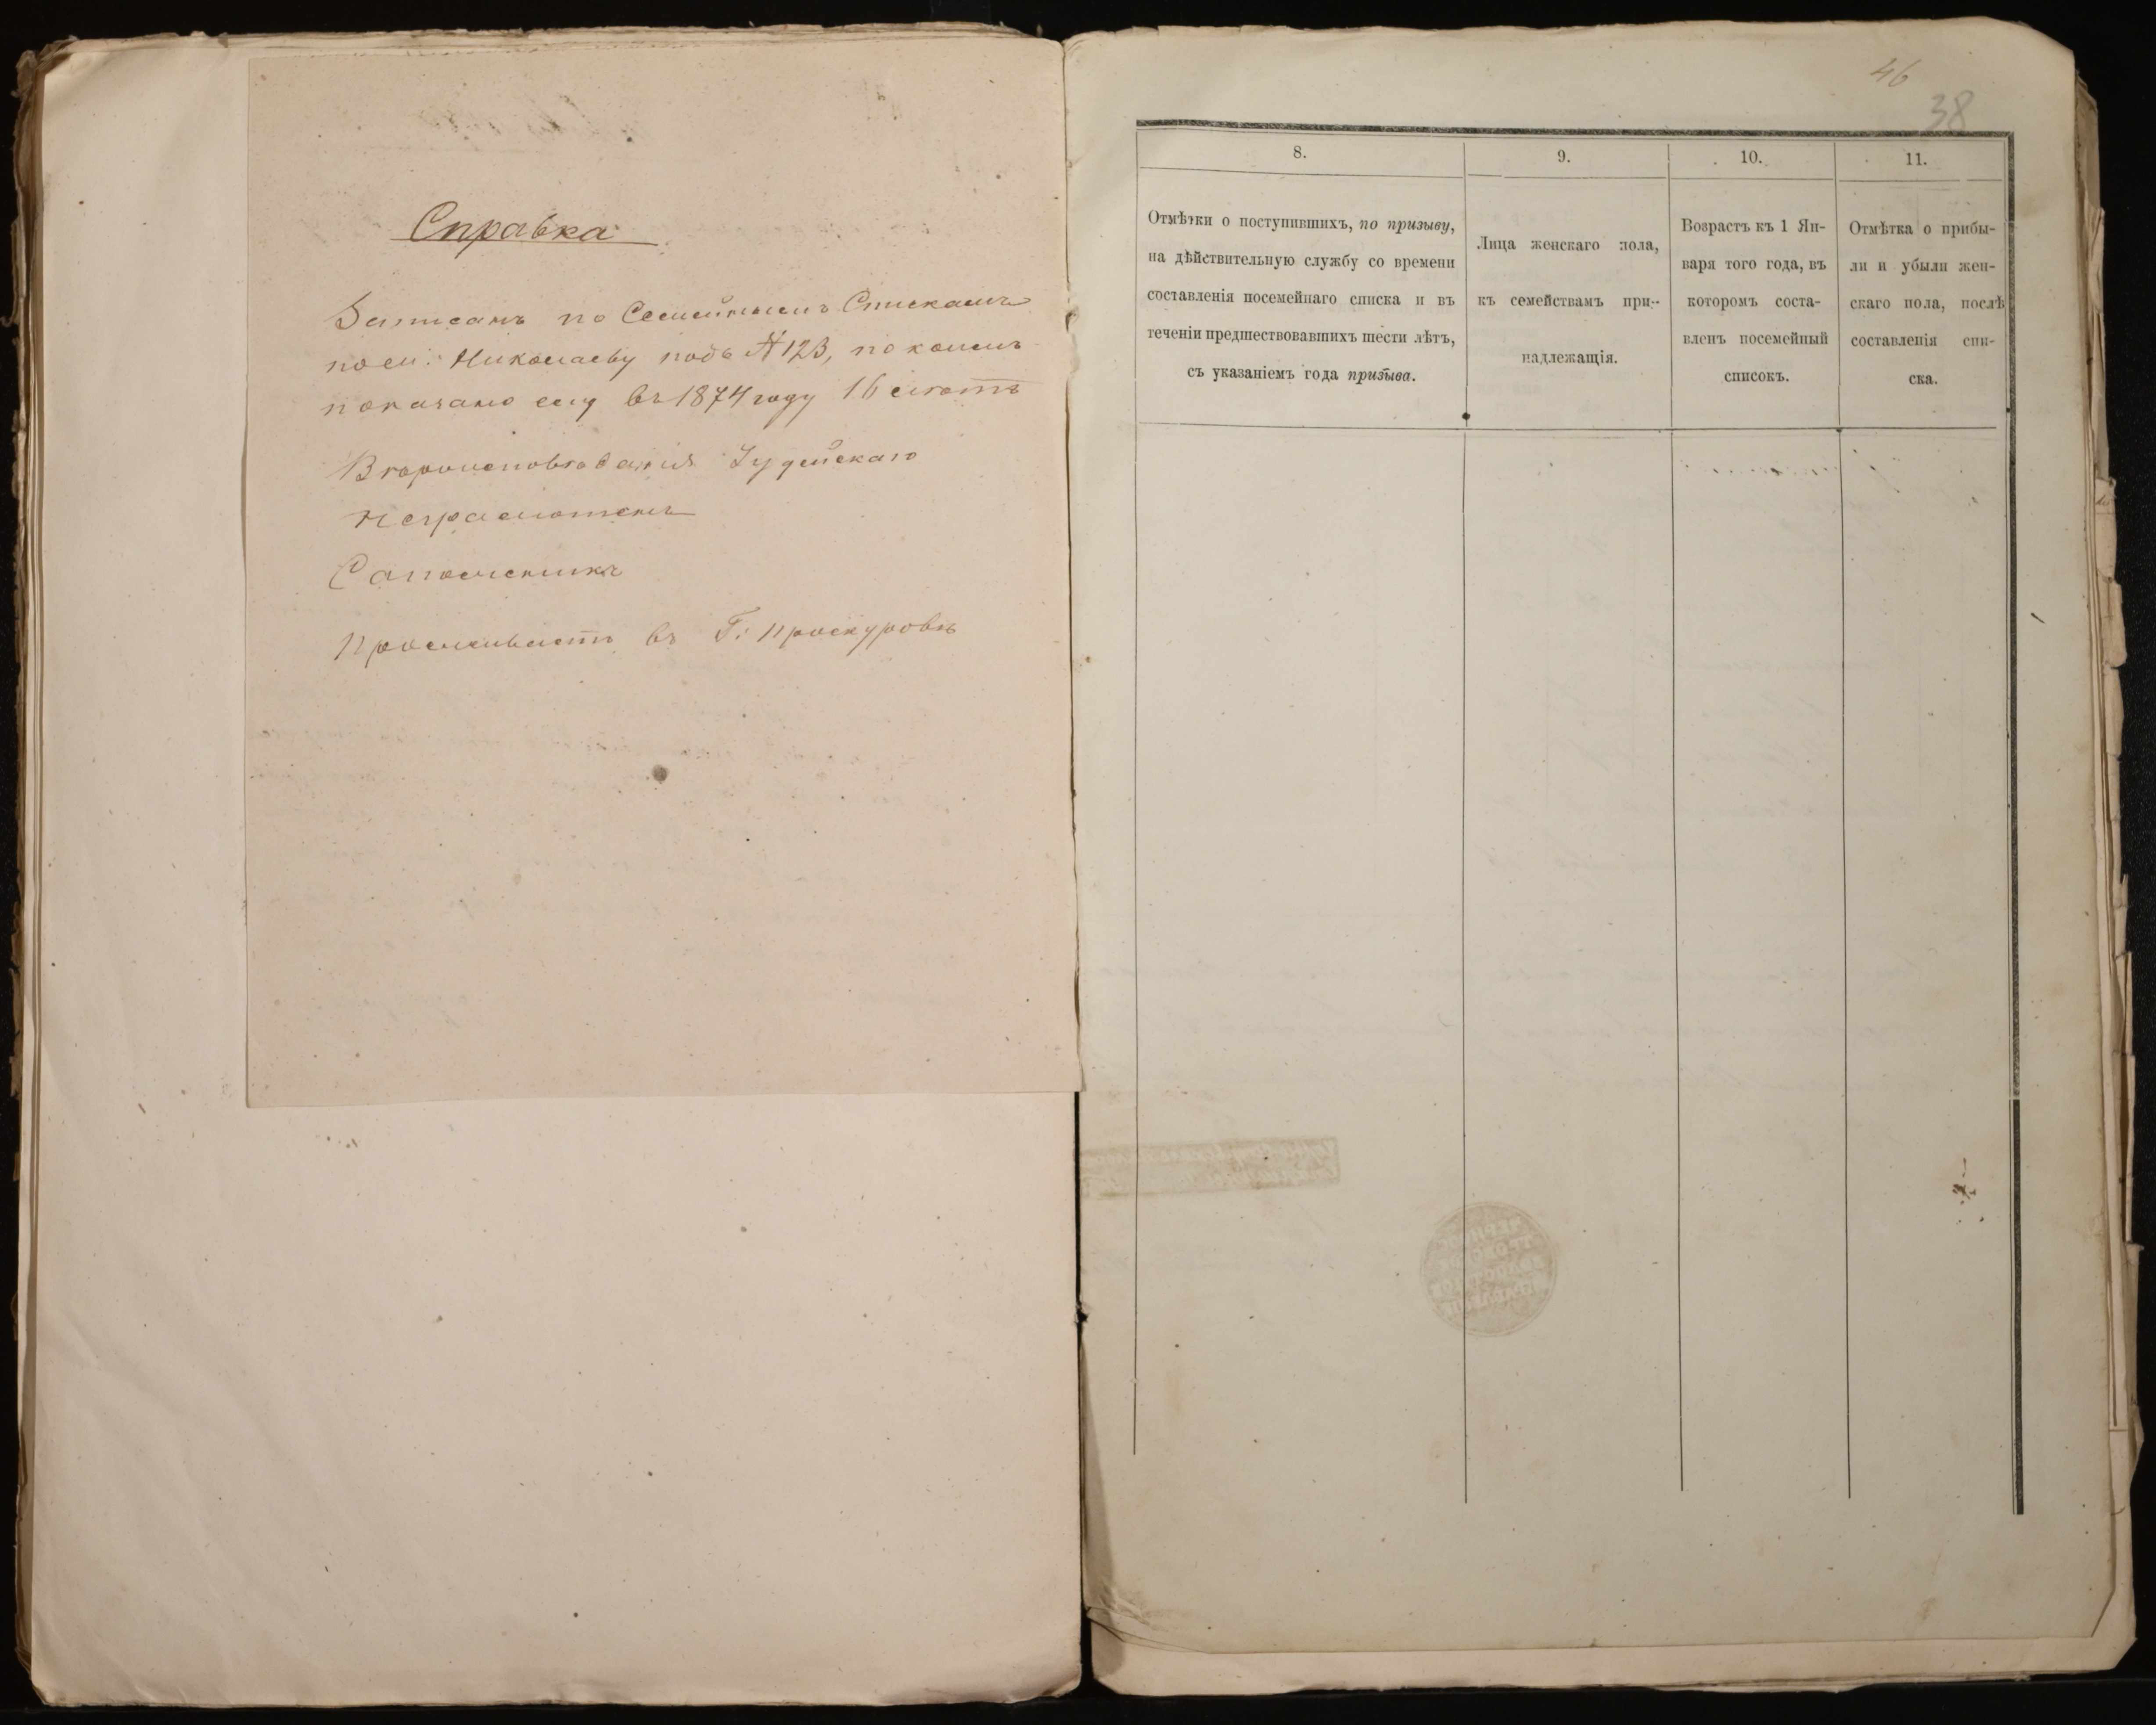 Справка
Записанъ по Семейнымъ Спискамъ
по м: Николаеву подъ № 123, по коимъ
показано ему въ 1874 году 16 лѣтъ
Вѣроисповѣданія Іудейскаго
Неграмотенъ
Сапожникъ
Проживаетъ въ Г: Проскуровѣ
46
38
8.
Отмѣтки о поступившихъ, по призыву,
на дѣйствительную службу со времени
составленія посемейнаго списка и въ
теченіи предшествовавшихъ шести лѣтъ,
съ указаніемъ года призыва.
9.
Лица женскаго пола,
къ семействамъ при-
надлежащія.
10.
Возрастъ къ 1 Ян-
варя того года, въ
которомъ соста-
вленъ посемейный
списокъ.
11.
Отмѣтка о прибы-
ли и убыли жен-
скаго пола, послѣ
составленія спи-
ска.